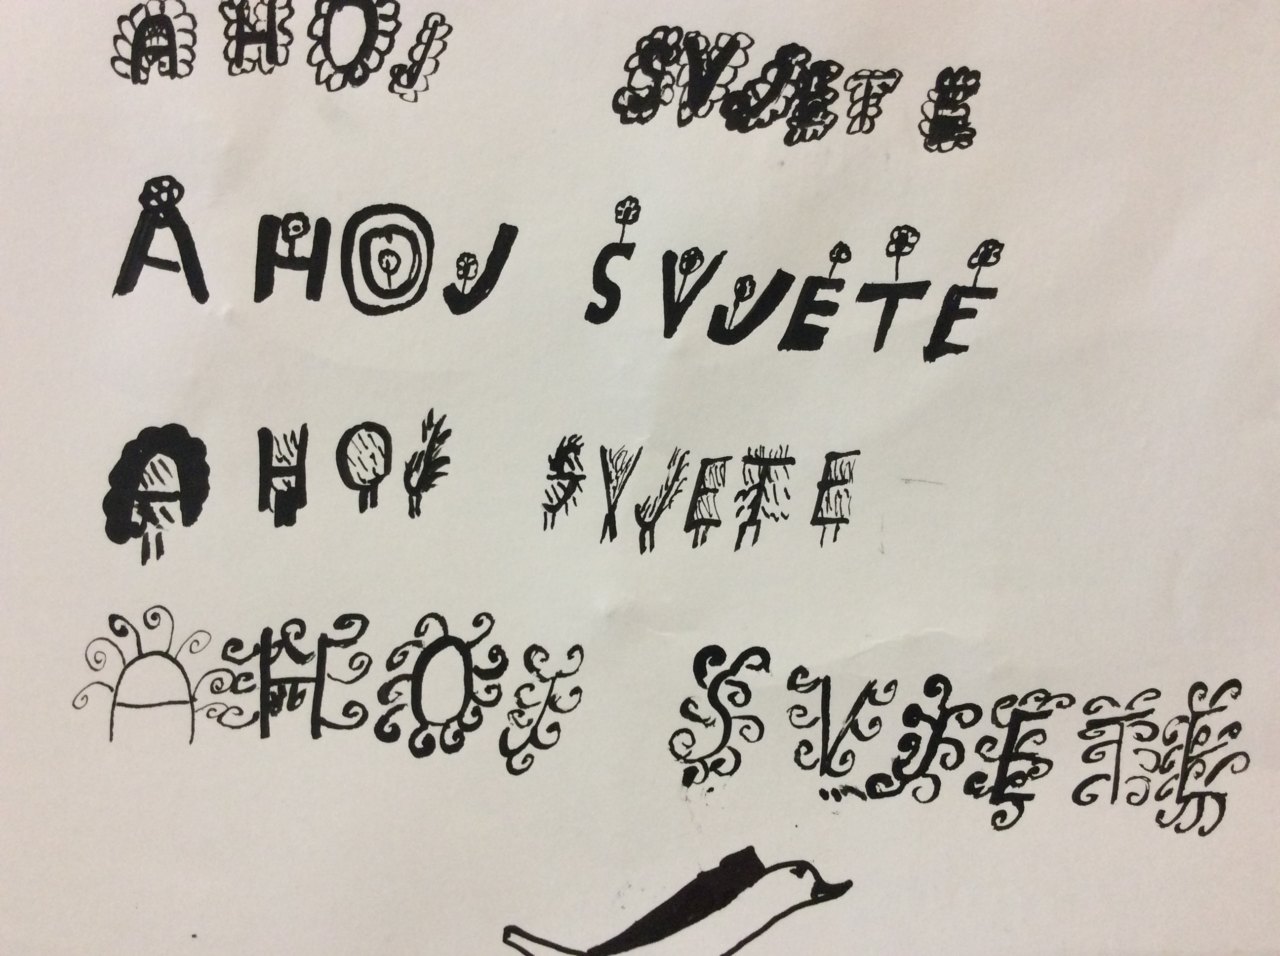 AHOJ SVJETE
AHOJ SVJETE
AHOJ SVJETE
AHOJ SVJETE